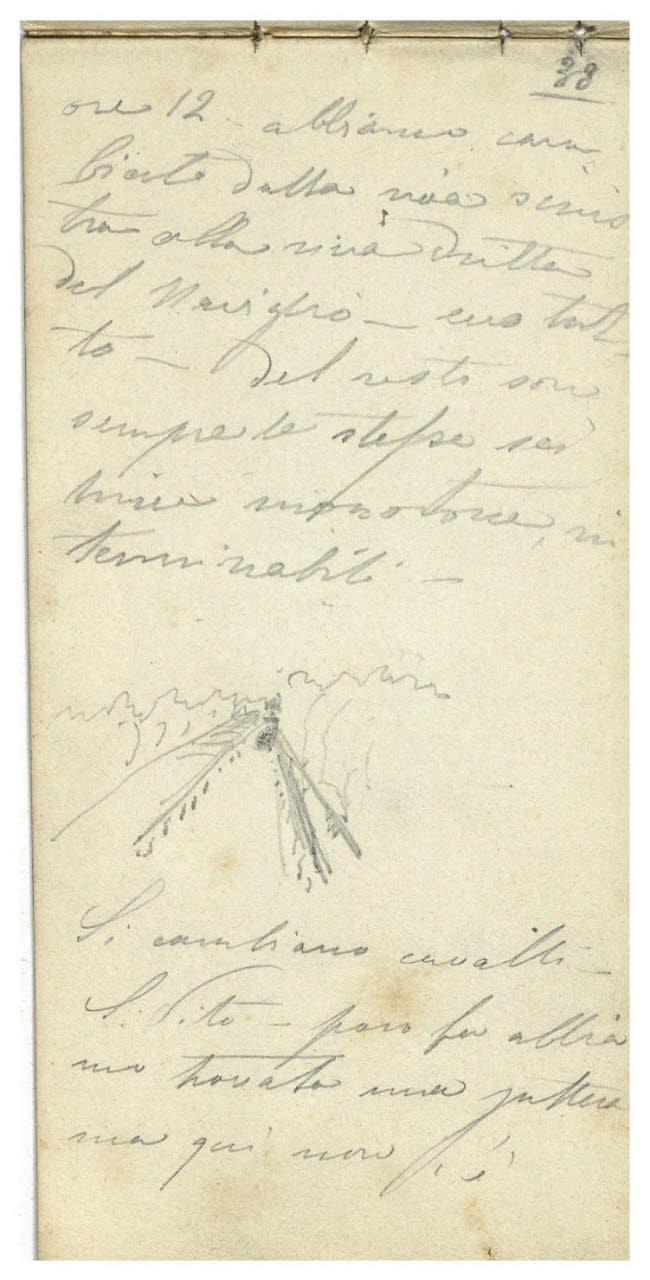 38
ore 12 - abbiamo cam
biato dalla riva sinis
tra alla riva dritta
del Naviglio - ecco tut
to - del resto sono
sempre le stesse
linee monotone, in
terminabili -
Si cambiano cavalli -
S. Vito - poco fa abbia
mo trovato una
ma qui non c'è